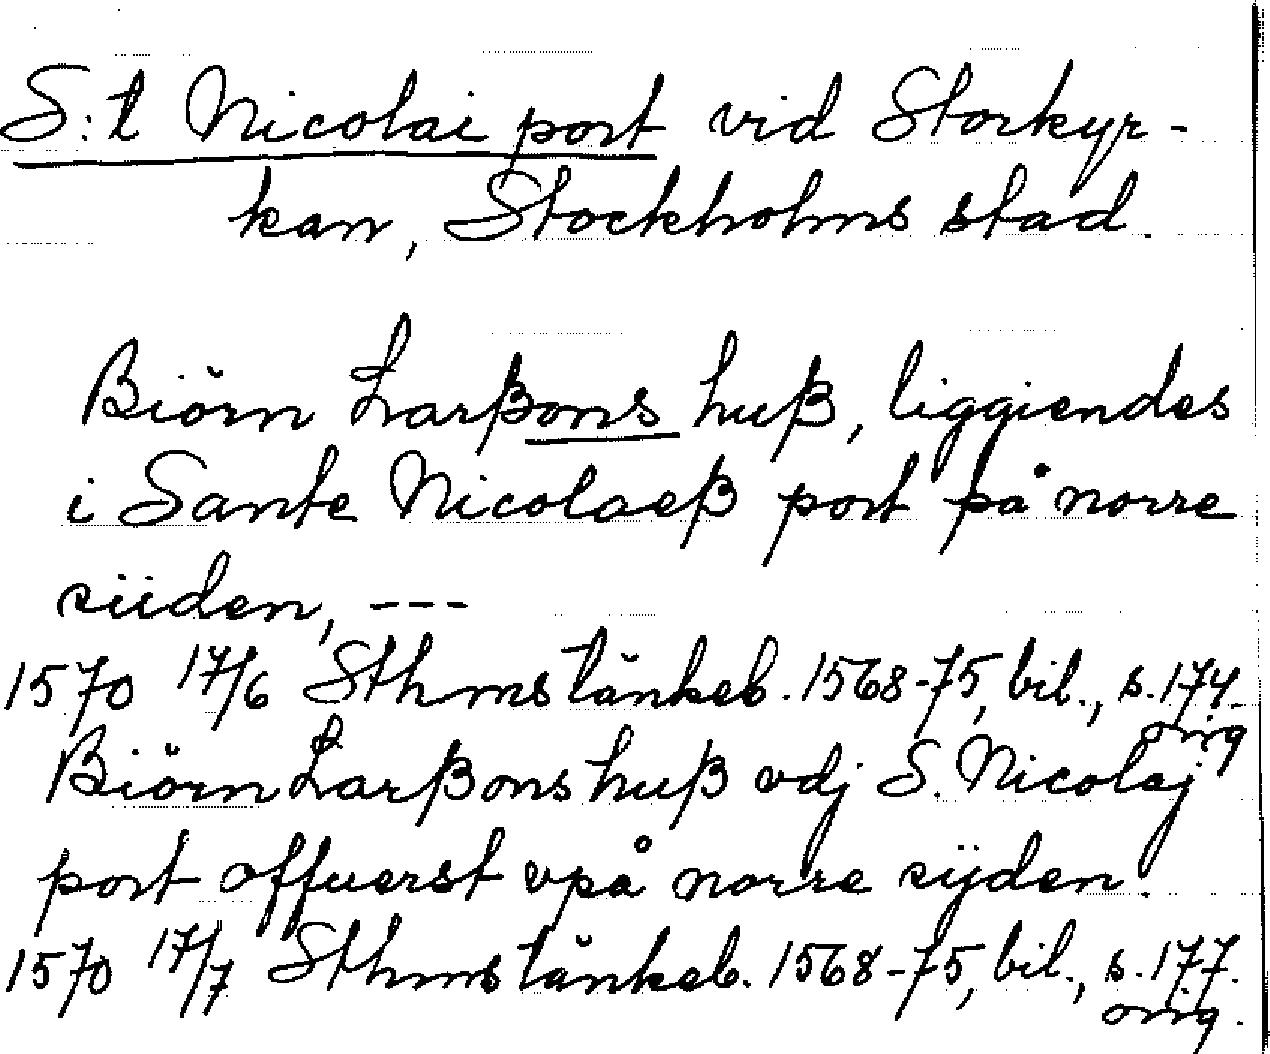 S:t Nicolai port vid Storkyr-
kan, Stockholms stad.
Biörn Larßons huß, liggiendes
i Sante Nicolaeß port på norre
siiden, ---
1570 17/6 Sthms tänkeb. 1568-75, bil., s. 174.
orig
Biörn Larßons huß vdj S. Nicolaj
port offuerst vpå norre sÿden.
1570 17/7 Sthms tänkeb. 1568-75, bil., s. 177.
orig.